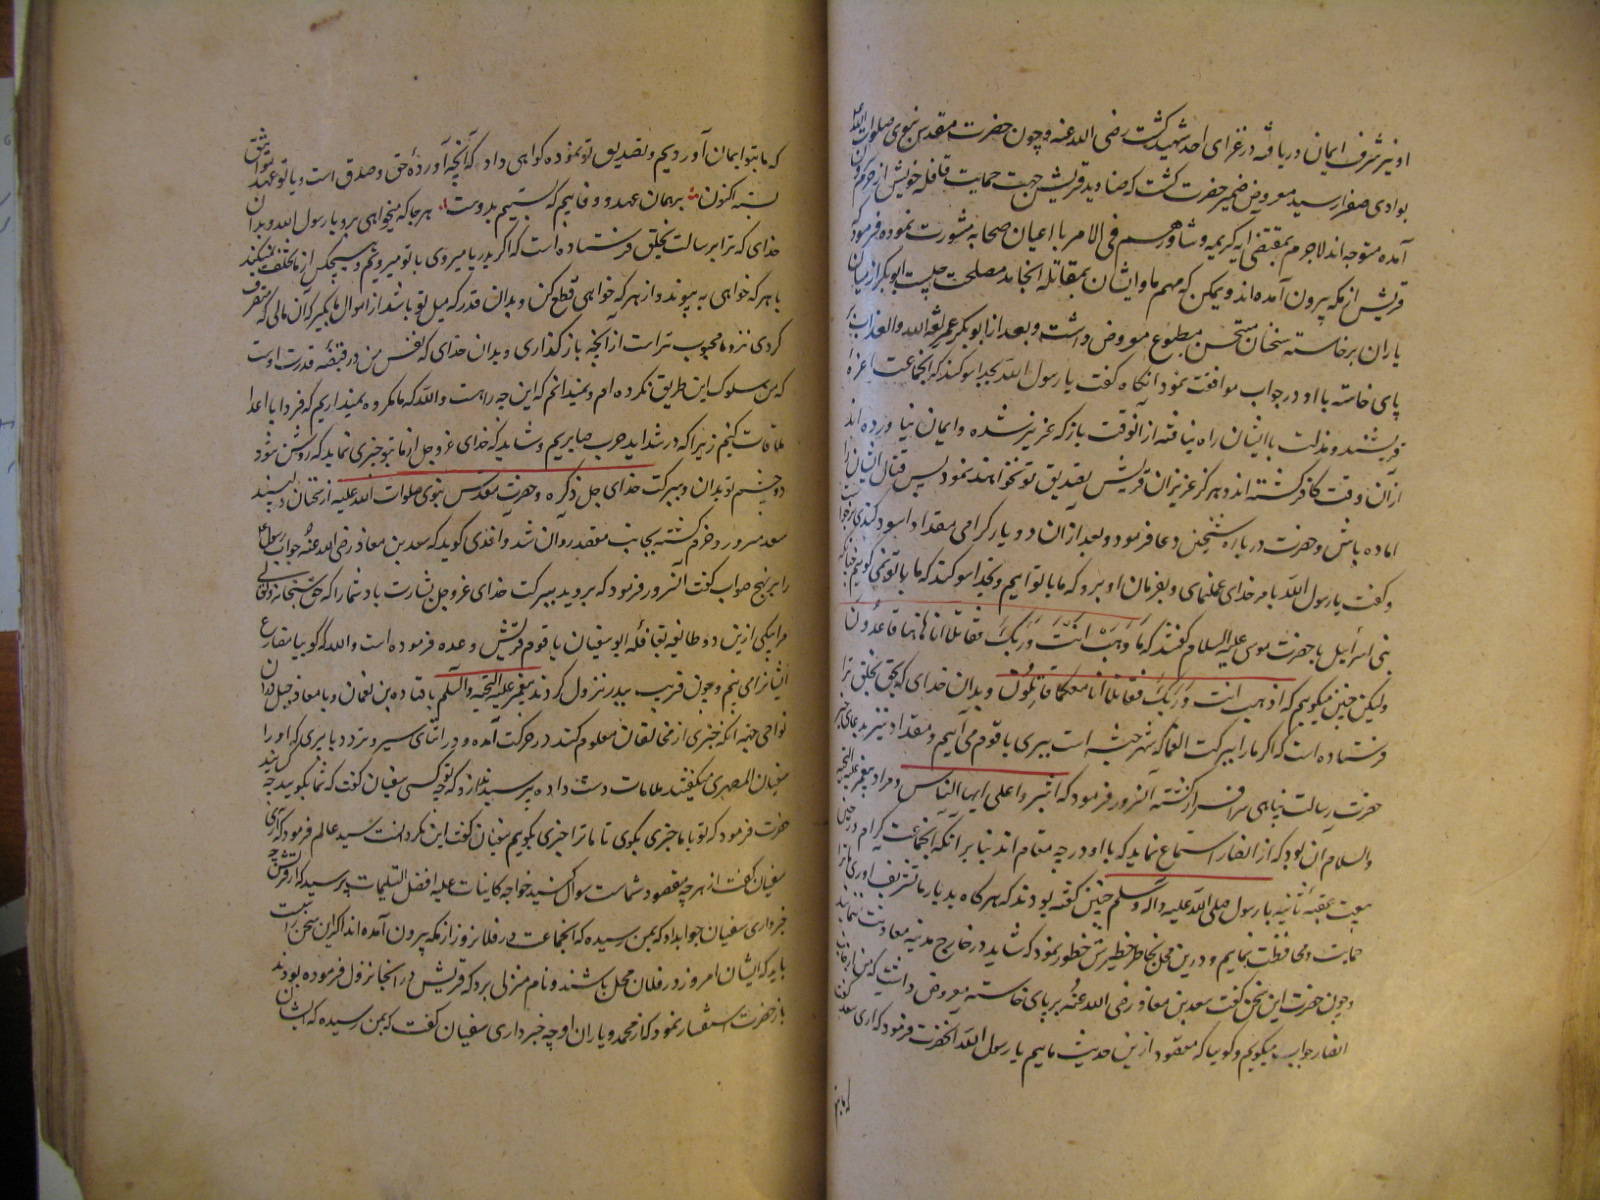 او نیز شرف ایمان دریافته در غزای احد شهید گشت رضی الله عنه و چون حضرت مقدس نبوی صلوات الله علیه
بوادی صفرا رسید معروض ضمیر حضرت گشت که صنادید قریش جهت حمایت قافله خویش از حرم بیرون
آمده متوجه اند لاجرم بمقتضی آیه کریمه و شاورهم فی الامر با اعیان صحابه مشورت نموده فرمود که
قریش از مکه بیرون آمده اند و یمکن که مهم ما و ایشان بمقاتله انجامد مصلحت چیست ابوبکر از میان
یاران برخاسته سخنان مستحسن مطبوع معروض داشت و بعد از ابوبکر عمر
پای خاسته با او در جواب موافقت نمود آنگاه گفت یا رسول الله بخدا سوگند که انجماعت اعزه
قریشند و مذلت با ایشان راه نیافته از آنوقت باز که عزیز شده و ایمان نیاورده اند
از آن وقت که کافر گشته اند و هرگز عزیزان قریش تصدیق تو نخواهند نمود پس قتال ایشان را
اماده باش و حضرت درباره شیخین دعا فرمود و بعد از ان دو یار گرامی مقداد اسود کندی برخواست
و گفت یا رسول الله بامر خدای عمل نمای و بفرمان او برو که ما با تو ایم و بخدا سوگند که ما با تو نمی گوییم چنانکه
بنی اسرأیل با حضرت موسی علیه السلام گفتند که اذهب انت و ربک فقاتلا انا هاهنا قاعدون
ولیکن چنین میگوییم که اذهب انت و ربک فقاتلا انا معکما مقاتلون و بدان خدای که بحق بخلق ترا
فرستاده است که اگر ما را ببرکت الغماد که شهر حبشه است ببری با تو می آییم و مقداد نیز بدعای خیر
حضرت رسالت پناهی سرافراز گشته آنسرور فرمود که اشیروا علی ایها الناس و مراد پیغمبر علیه التحیه
والسلام آن بود که از انصار استماع نماید که با او در چه مقام اند بنا بر آنکه انجماعت کرام در حین
بیعت عقبه ثانیه با رسول صلی الله علیه و اله و سلم چنین گفته بودند که هرگاه بدیار ما تشریف اوری ترا
حمایت و محافظت نماییم و درین محل بخاطر خطیرش خطور نمود که شاید در خارج مدینه معاونت ننمایند
و چون حضرت این سخن گفت سعد بن معاذ رضی الله عنه بر پای خاسته معروض داشت که من از جانب
انصار جواب میگویم و گویا که مقصود ازین حدیث ماییم یا رسول الله آنحضرت فرمود که اری سعد گفت
که ما بتو ایمان آوردیم و تصدیق تو نموده گواهی داد که آنچه آوردۀ حق و صدق است و با تو عهد و مواثیق
بسته اکنون بر همان عهد و وفاییم که بستیم بدوست هر جا که میخواهی برو یا رسول الله و بدان
خدای که ترا برسالت بخلق فرستاده است که اگر بدریا میروی با تو میرویم و هیچکس از ما تخلف نمیکند
با هر که خواهی به پیوند و از هر که خواهی قطع کن و بدان قدر که میل تو باشد از اموال ما بگیر که آن مالی که متصرف
گردی نزد ما محبوب تر است از آنچه باز گذاری و بدان خدای که نفس من در قبضه قدرت اوست
که من سلوک این طریق نکرده ام و نمیدانم که این چه راهست والله که ما مکروه نمیداریم که فردا با اعدا
ملاقات کنیم زیرا که در شداید حرب صابریم و شاید که خدای عز وجل از ما بتو چیزی نماید که روشن شود
دو چشم تو بدان و ببرکت خدای جل ذکره و حضرت مقدس نبوی صلوات الله علیه از سخنان دلپسند
سعد مسرور و خرم گشته بجانب مقصد روان شد و واقدی گوید که سعد بن معاذ رضی الله عنه جواب رسول
را برین نهج صواب گفت آنسرور فرمود که بروید ببرکت خدای عز وجل بشارت باد شما را که حق سبحانه و تعالی
مرا یکی ازین دو طائفه بقافله ابوسفیان یا قوم قریش وعده فرموده است والله که گوییا مصارع
ایشانرا می بینم و چون قریب ببدر نزول کردند پیغمبر علیه التحیه والسلم با قتاده بن نعمان و با معاذ جبل در ان
نواحی جنبه آنکه خبری از مخالفان معلوم کند در حرکت آمده و در اثنای سیر و تردد با پیری که او را
سفیان المصری میگفتند ملاقات دست داده پرسید که تو چه کسی سفیان گفت که شما بگویید چه کسانید
حضرت فرمود که تو با ما خبری بگوی تا ما ترا خبری بگوییم سفیان گفت این بگرد آنست سید عالم فرمود که آری
سفیان گفت از هر چه مقصود شماست سوال کنید خواجه کاینات علیه افضل التسلیمات پرسید که از قریش چه
خبر داری سفیان جواب داد که بمن رسیده که انجماعت در فلان روز از مکه بیرون آمده اند اگر این سخن راست
باید که ایشان امروز در فلان محل باشند و نام منزلی برد که قریش در آنجا نزول فرموده بودند
باز حضرت استفسار نمود که از محمد و یاران او چه خبر داری سفیان گفت که بمن رسیده که ایشان